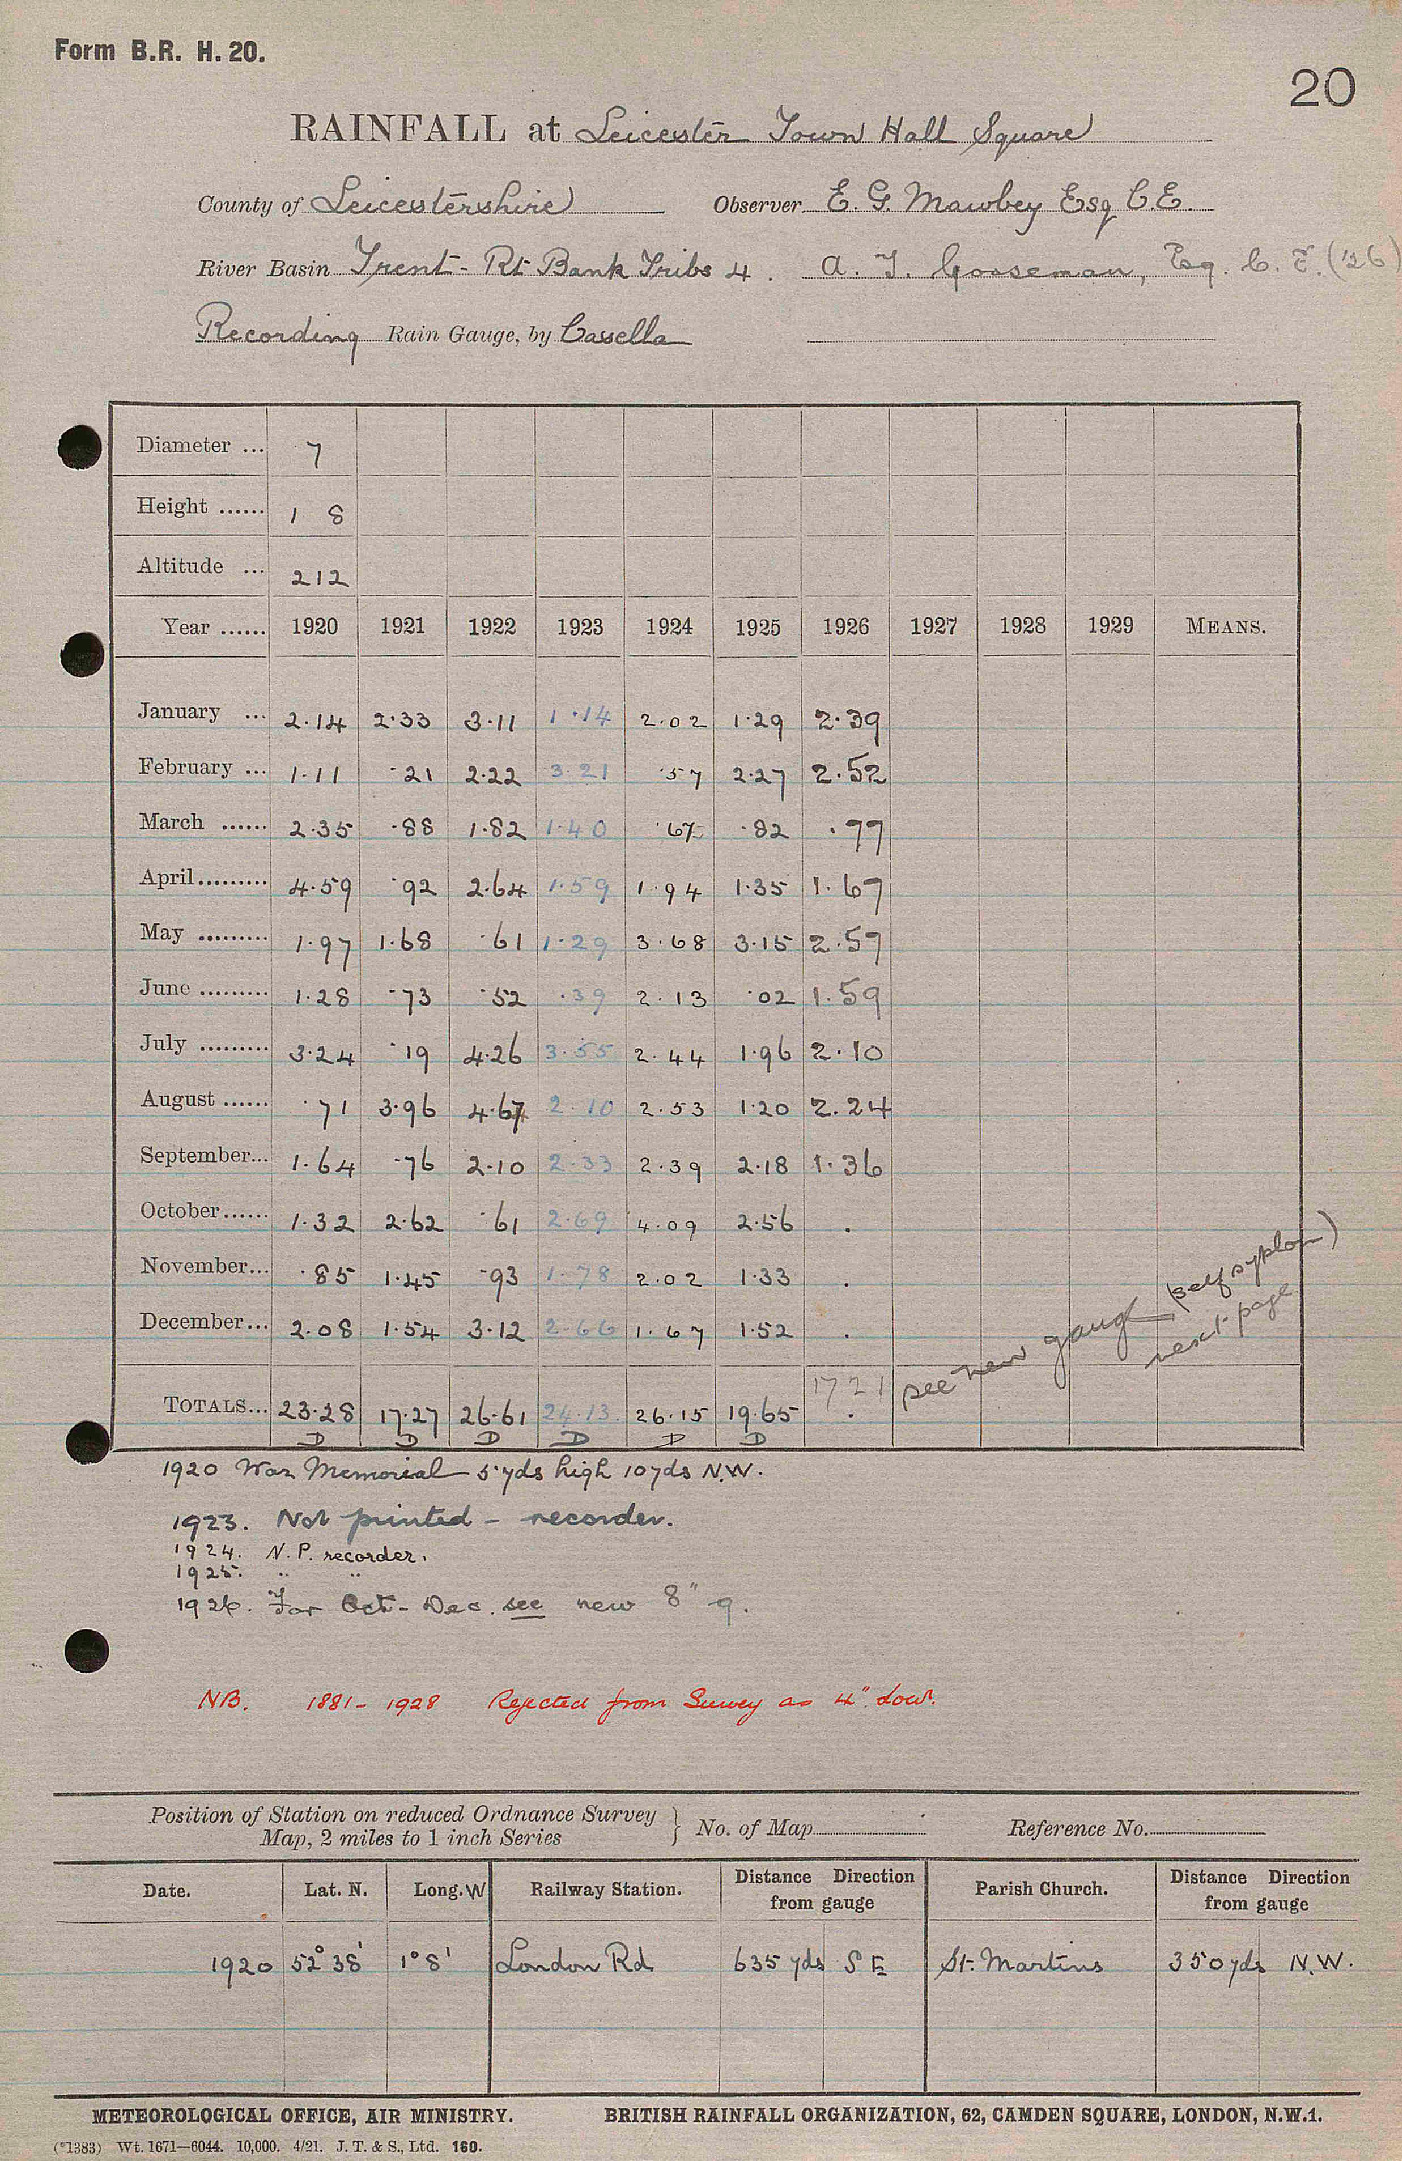 Form B.R. H. 20.
20
RAINFALL at Leicester Town Hall Square
County of Leicestershire Observer E. G. Mawbey Esq C.E.
River Basin Trent - Rt Bank Tribs 4. A. T. Gooseman, Esq. C. E. ('26)
Recording Rain Gauge, by Casella
Diameter ... 7
Height ...... 1 8
Altitude ... 212
Year ...... 1920 1921 1922 1923 1924 1925 1926 1927 1928 1929 MEANS.
January ... 2.14 2.33 3.11 1.14 2.02 1.29 2.39
February ... 1.11 .21 2.22 3.21 .57 2.27 2.52
March ...... 2.35 .88 1.82 1.40 .67 .82 .77
April ......... 4.59 .92 2.64 1.59 1.94 1.35 1.67
May ......... 1.97 1.68 .61 1.29 3.68 3.15 2.57
June ......... 1.28 .73 .52 .39 2.13 .02 1.59
July ......... 3.24 .19 4.26 3.55 2.44 1.96 2.10
August ...... .71 3.96 4.67 2.10 2.53 1.20 2.24
September... 1.64 .76 2.10 2.33 2.39 2.18 1.36
October...... 1.32 2.62 .61 2.69 4.09 2.56 .
November... .85 1.45 .93 1.78 2.02 1.33 .
December... 2.08 1.54 3.12 2.66 1.67 1.52 .
see new gauge (self syphon)
next page
17 21
TOTALS... 23.28 17.27 26.61 24.13 26.15 19.65 .
D D D D D D
1920 War Memorial 5 yds high 10 yds N.W.
1923. Not printed - recorder.
1924. N. P. recorder.
1925. " "
1926. For Oct - Dec. see new 8" g.
NB. 1881 - 1928 Rejected from Survey as 4". low.
Position of Station on reduced Ordnance Survey
Map, 2 miles to 1 inch Series } No. of Map Reference No.
Date. Lat. N. Long. W Railway Station. Distance Direction from gauge Parish Church. Distance Direction from gauge
1920 52° 38' 1° 8' London Rd 635 yds S E St. Martins 350 yds N.W.
METEOROLOGICAL OFFICE, AIR MINISTRY. BRITISH RAINFALL ORGANIZATION, 62, CAMDEN SQUARE, LONDON, N.W.1.
(*1383) Wt. 1671—6044. 10,000. 4/21. J. T. & S., Ltd. 160.